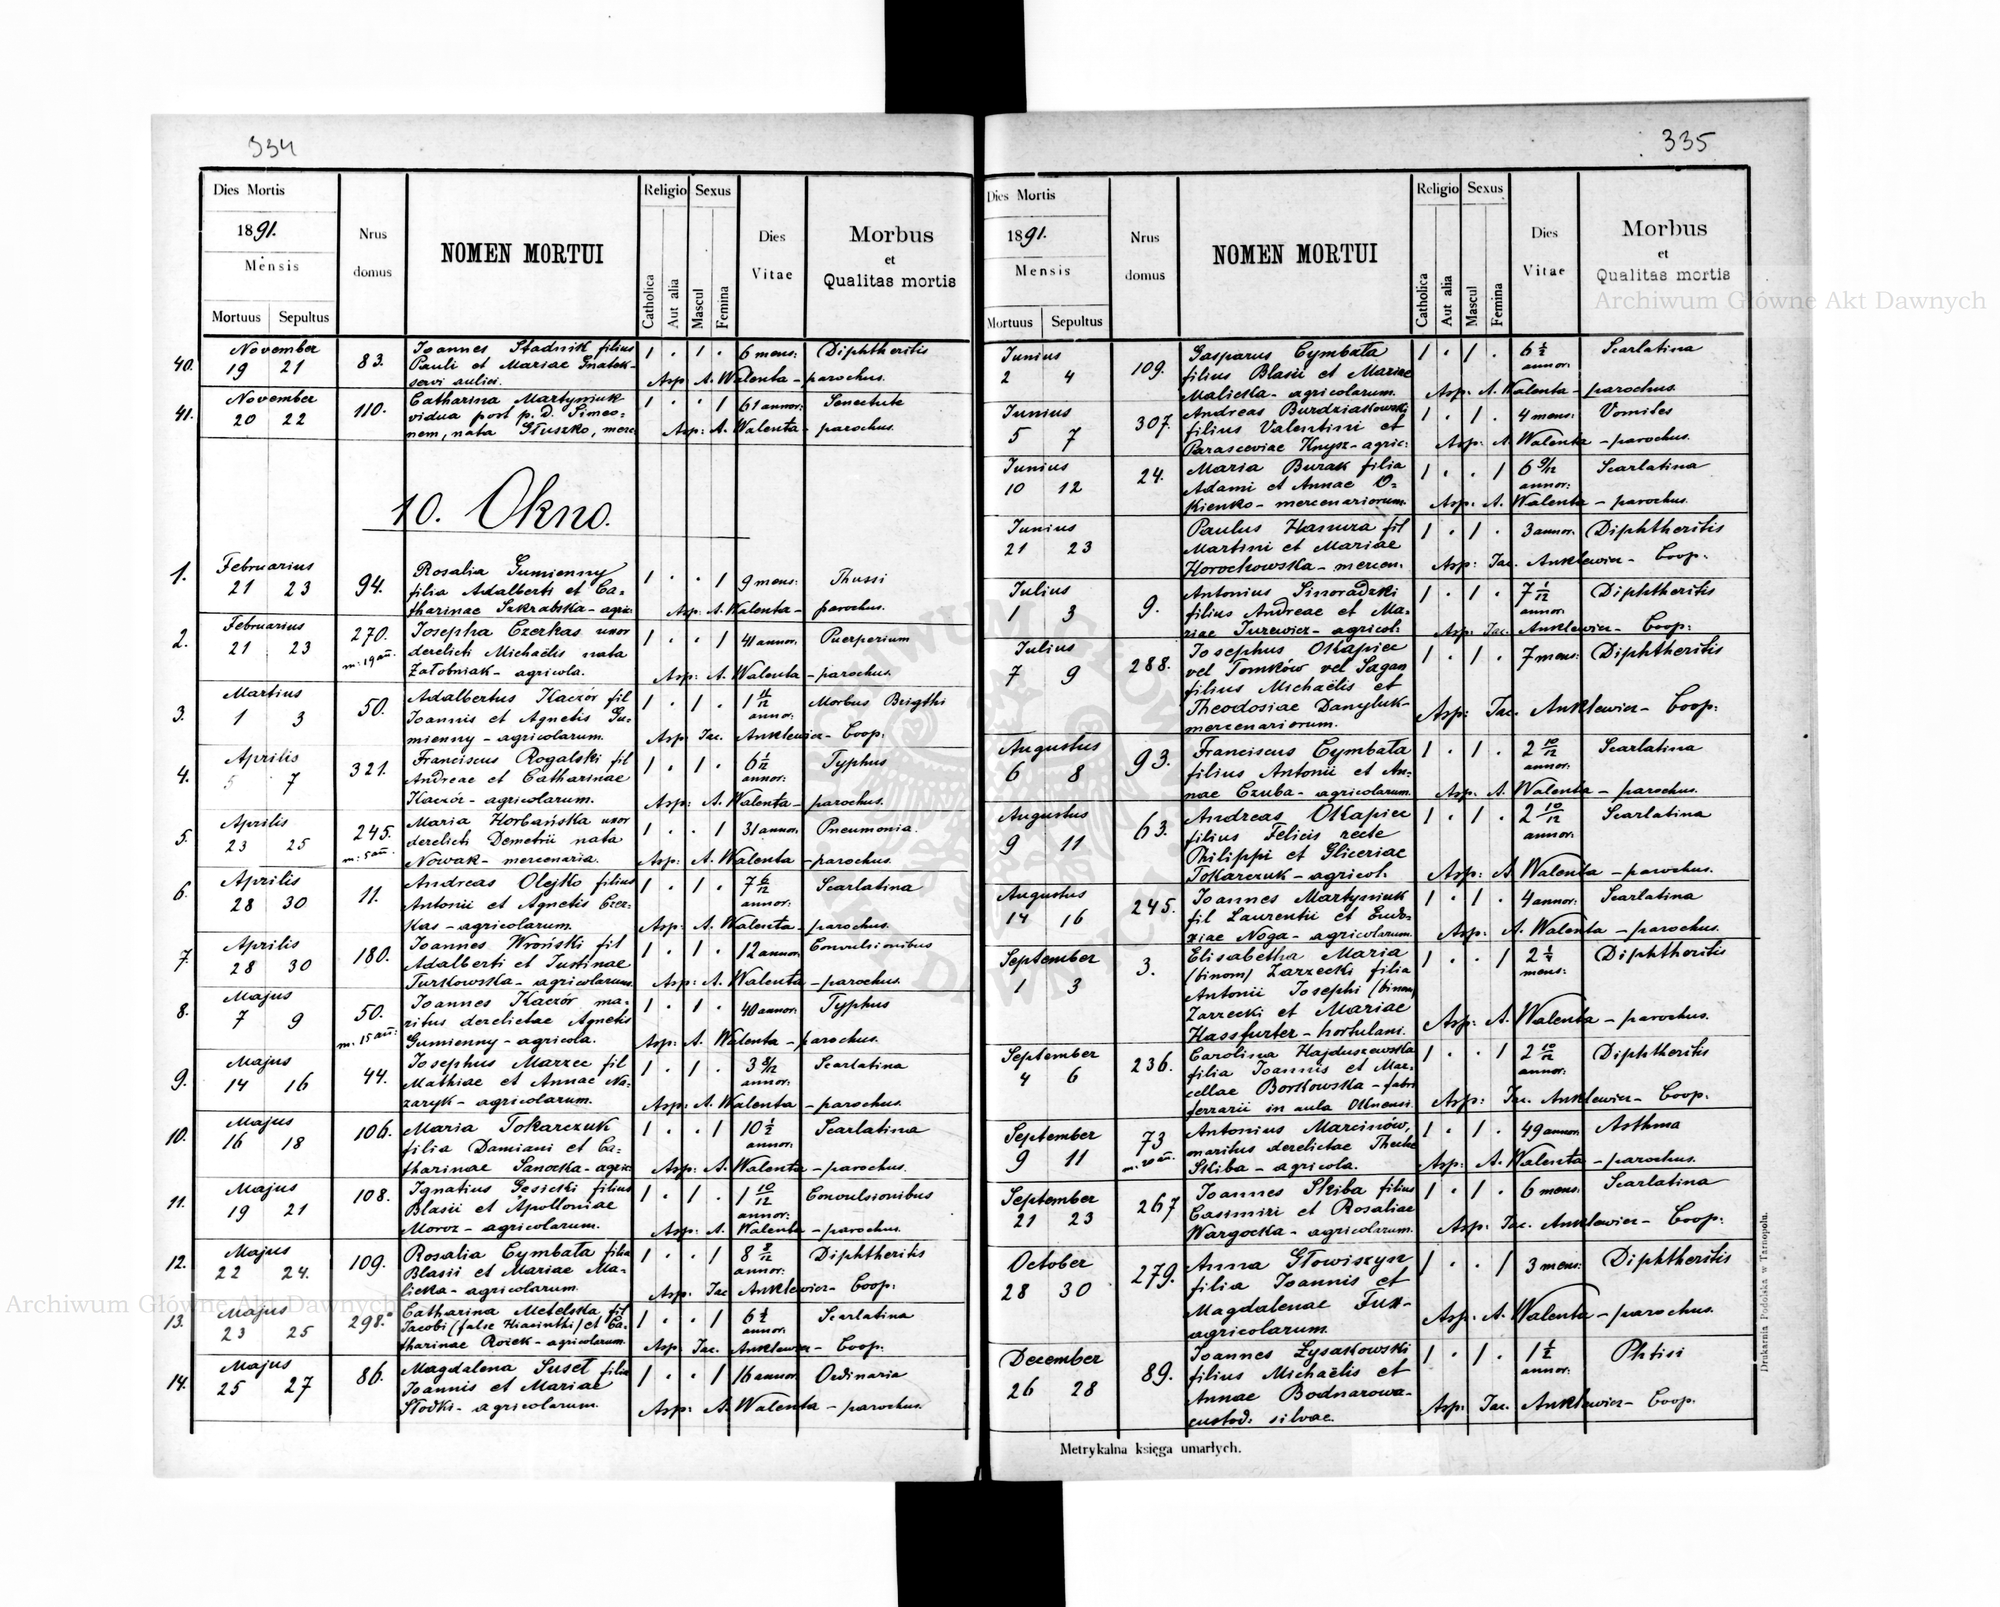 334
Dies Mortis
1891.
Mensis
Mortuus Sepultus
Nrus
domus
NOMEN MORTUI
Religio
Catholica
Aut alia
Sexus
Mascul
Femina
Dies
Vitae
Morbus
et
Qualitas mortis
40. November 19 21 83. Joannes Stadnik filius 1 . 1 . 6 mens: Diphtheritis
Pauli et Mariae Gnatek-
servi aulici. Asp: A. Walenta - parochus.
41. November 20 22 110. Catharina Martyniuk 1 . . 1 61 annor: Senectute
vidua post p. d. Simeo-
nem, nata Głuszko, merc: Asp: A. Walenta - parochus.
10. Okno.
1. Februarius 21 23 94. Rosalia Gumienny 1 . . 1 9 mens: Thussi
filia Adalberti et Ca-
tharinae Szkrabska - agric: Asp: A. Walenta - parochus.
2. Februarius 21 23 270. m: 19 añ. Josepha Czerkas uxor 1 . . 1 41 annor: Puerperium
derelicti Michaëlis nata
Żałobniak - agricola. Asp: A. Walenta - parochus.
3. Martius 1 3 50. Adalbertus Kaczór fil 1 . 1 . 1 11/12 annor: Morbus Brigthi
Joannis et Agnetis Gu-
mienny - agricolarum. Asp: Jac. Anklewicz - Coop:
4. Aprilis 5 7 321. Franciscus Rogalski fil 1 . 1 . 6 1/12 annor: Typhus
Andreae et Catharinae
Kaczór - agricolarum. Asp: A. Walenta - parochus.
5. Aprilis 23 25 245. m: 5 añ. Maria Horbańska uxor 1 . . 1 31 annor: Pneumonia.
derelicti Demetrii nata
Nowak - mercenaria. Asp: A. Walenta - parochus.
6. Aprilis 28 30 11. Andreas Olejko filius 1 . 1 . 7 6/12 annor: Scarlatina
Antonii et Agnetis Czer-
kas - agricolarum. Asp: A. Walenta - parochus.
7. Aprilis 28 30 180. Joannes Wroński fil 1 . 1 . 12 annor: Convulsionibus
Adalberti et Justinae
Turkowska - agricolarum. Asp: A. Walenta - parochus.
8. Majus 7 9 50. m. 15 añ: Joannes Kaczór ma- 1 . 1 . 40 annor: Typhus
ritus derelictae Agnetis
Gumienny - agricola. Asp: A. Walenta - parochus.
9. Majus 14 16 44. Josephus Marzec fil 1 . 1 . 3 8/12 annor: Scarlatina
Mathiae et Annae Na-
zaryk - agricolarum. Asp: A. Walenta - parochus.
10. Majus 16 18 106. Maria Tokarczuk 1 . . 1 10 1/2 annor: Scarlatina
filia Damiani et Ca-
tharinae Sanocka - agric: Asp: A. Walenta - parochus.
11. Majus 19 21 108. Ignatius Gesicki filius 1 . 1 . 1 10/12 annor: Convulsionibus
Blasii et Apolloniae
Moroz - agricolarum. Asp: A. Walenta - parochus.
12. Majus 22 24. 109. Rosalia Cymbała filia 1 . . 1 8 8/12 annor: Diphtheritis
Blasii et Mariae Ma-
licka - agricolarum. Asp: Jac Anklewicz - Coop:
13. Majus 23 25 298. Catharina Metelska fil 1 . . 1 6 1/2 annor: Scarlatina
Jacobi (false Hiacinthi) et Ca-
tharinae Rożek - agricolarum. Asp: Jac. Anklewicz - Coop.
14. Majus 25 27 86. Magdalena Suseł filia 1 . . 1 16 annor: Ordinaria
Joannis et Mariae
Słodki - agricolarum. Asp: A. Walenta - parochus.
335
Dies Mortis
1891.
Mensis
Mortuus Sepultus
Nrus
domus
NOMEN MORTUI
Religio
Catholica
Aut alia
Sexus
Mascul
Femina
Dies
Vitae
Morbus
et
Qualitas mortis
Junius 2 4 109. Gasparus Cymbała 1 . 1 . 6 1/2 annor: Scarlatina
filius Blasii et Mariae
Malicka - agricolarum. Asp: A. Walenta - parochus.
Junius 5 7 307. Andreas Burdziakowski 1 . 1 . 4 mens: Vomites
filius Valentini et
Parasceviae Knysz - agric: Asp: A. Walenta - parochus.
Junius 10 12 24. Maria Burak filia 1 . . 1 6 9/12 annor: Scarlatina
Adami et Annae O-
kienko - mercenariorum. Asp: A. Walenta - parochus.
Junius 21 23 Paulus Hanura fil 1 . 1 . 3 annor: Diphtheritis
Martini et Mariae
Horochowska - mercen. Asp: Jac. Anklewicz - Coop.
Julius 1 3 9. Antonius Sinoradzki 1 . 1 . 7 1/12 annor: Diphtheritis
filius Andreae et Ma-
riae Jurewicz - agricol: Asp: Jac. Anklewicz - Coop:
Julius 7 9 288. Josephus Okapiec 1 . 1 . 7 mens: Diphtheritis
vel Tomków vel Sagan
filius Michaëlis et
Theodosiae Danyluk-
mercenariorum. Asp: Jac. Anklewicz - Coop:
Augustus 6 8 93. Franciscus Cymbała 1 . 1 . 2 10/12 annor: Scarlatina
filius Antonii et An-
nae Czuba - agricolarum. Asp: A. Walenta - parochus.
Augustus 9 11 63. Andreas Okapiec 1 . 1 . 2 10/12 annor: Scarlatina
filius Felicis recte
Philippi et Gliceriae
Tokarczuk - agricol. Asp: A. Walenta - parochus.
Augustus 14 16 245. Joannes Martyniuk 1 . 1 . 4 annor: Scarlatina
fil Laurentii et Eudo-
xiae Noga - agricolarum. Asp: A. Walenta - parochus.
September 1 3 3. Elisabetha Maria 1 . . 1 2 1/2 mens: Diphtheritis
(binom) Zarzecki filia
Antonii Josephi (binom)
Zarzecki et Mariae
Hassfurter - hortulani. Asp: A. Walenta - parochus.
September 4 6 236. Carolina Hajduszewska 1 . . 1 2 10/12 annor: Diphtheritis
filia Joannis et Mar-
cellae Borkowska - fabri
ferrarii in aula Oknensi. Asp: Jac. Anklewicz - Coop.
September 9 11 73 m. 20 añ. Antonius Marcinów, 1 . 1 . 49 annor: Asthma
maritus derelictae Theclae
Skiba - agricola. Asp: A. Walenta - parochus.
September 21 23 267 Joannes Skiba filius 1 . 1 . 6 mens: Scarlatina
Casimiri et Rosaliae
Wargocka - agricolarum. Asp: Jac. Anklewicz - Coop:
October 28 30 279. Anna Głowiszyn 1 . . 1 3 mens: Diphtheritis
filia Joannis et
Magdalenae Fux-
agricolarum. Asp: A. Walenta - parochus.
December 26 28 89. Joannes Łysakowski 1 . 1 . 1 1/2 annor: Phtisi
filius Michaëlis et
Annae Bodnarowa-
custod: silvae. Asp: Jac. Anklewicz - Coop.
Metrykalna księga umarłych.
Drukarnia Podolska w Tarnopolu.
Archiwum Główne Akt Dawnych
Archiwum Główne Akt Dawnych